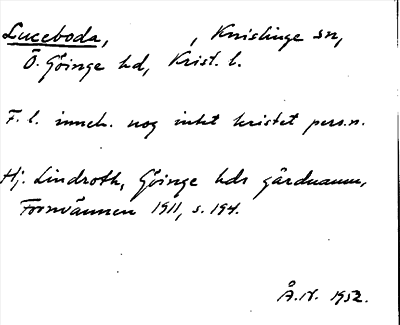 Luceboda, , Knislinge sn,
Ö. Göinge hd, Krist. l.
F. l. inneh. nog intet kristet pers.n.
Hj. Lindroth, Göinge hds gårdnamn,
Fornvännen 1911, s. 194.
Å. N. 1952.